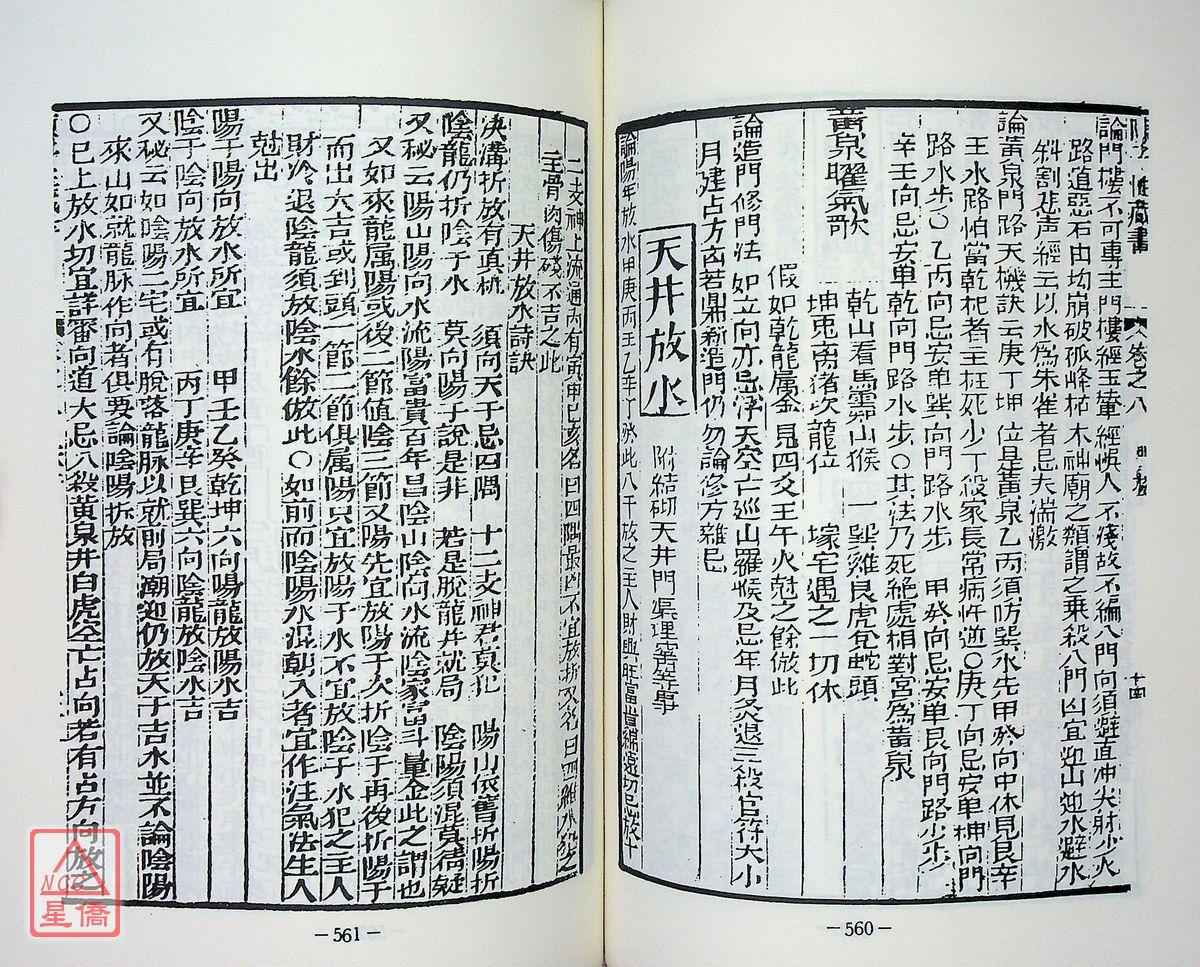 卷之八
論門樓不可專主門樓經玉輦經悞人不淺故不編八門向須避直冲尖射沙水
路道惡石山均崩破孤峰枯木神廟之類謂之乗殺八門凶宜迎山迎水避水
斜割悲聲經云以水爲朱雀者忌夫湍激
論黄泉門路天機訣云庚丁坤位是黄泉乙丙須防巽水先甲癸向中休見艮辛
壬水路怕當乾犯者主枉死少丁殺家長常病忤逆〇庚丁向忌安单坤向門
路水步〇乙丙向忌安单巽向門路水步 甲癸向忌安单艮向門路水步
辛壬向忌安单乾向門路水步〇其法乃死絶處相對宮爲黄泉
黄泉曜氣歌
乾山看馬震山猴 一巽雞艮虎兌蛇頭
坤兎离猪坎龍位 塚宅遇之一切休
假如乾龍属金見四爻壬午火尅之餘倣此
論造門修門法如立向亦忌浮天空亡巡山羅睺及忌年月灸退三殺官符大小
月建占方凶若鼎新造門仍勿論修方雜忌
天井放水
附結砌天井門渠埋窖等事
論陽年放水甲庚丙壬乙辛丁癸此八干放之主人財興旺富貴綿遠切忌放十
二支神上流通內有寅申巳亥名曰四隅最凶不宜放折又名曰四維水殺之
主骨肉傷殘不吉之此
天井放水詩訣
决溝折放有真機 須向天干忌四隅 十二支神君莫犯 陽山依舊折陽折
陰龍仍折陰干水 莫向陽干說是非 若是脫龍并就局 陰陽須混莫猜疑
又秘云陽山陽向水流陽富貴百年昌陰山陰向水流陰家富斗量金此之謂也
又如來龍属陽或後二節值陰三節又陽先宜放陽干次折陰干再後折陽干
而出六吉或到頭一節二節俱属陽只宜放陽干水不宜放陰干水犯之主人
財冷退陰龍須放陰水餘倣此〇如前而陰陽水混朝入者宜作注氣法生人
尅出
陽干陽向放水所宜 甲壬乙癸乾坤六向陽龍放陽水吉
陰干陰向放水所宜 丙丁庚辛艮巽六向陰龍放陰水吉
又秘云如陰陽二宅或有脫落龍脉以就前局潮迎仍放天干吉水並不論陰陽
來山如就龍脉作向者俱要論陰陽折放
〇已上放水切宜詳審向道大忌八殺黄泉井白虎空亡占向若有占方向放之
—560—
—561—
NCC
星僑